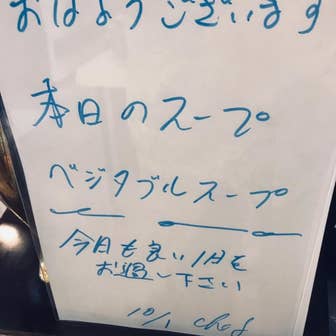 おはようございます
本日のスープ
ベジタブルスープ
今日も良い1日を
お過し下さい
10/1 chef